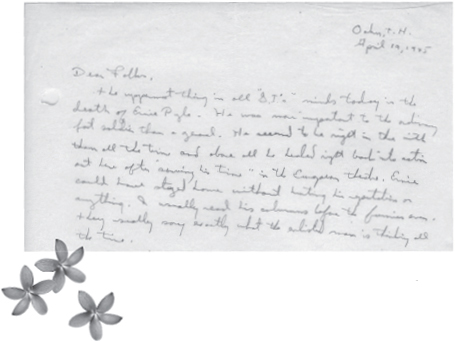 Oahu, T.H.
April 19, 1945
Dear Folks,
the uppermost thing in all "G.I.'s" minds today is the
death of Ernie Pyle. He was more important to the ordinary
foot soldier than a general. He seemed to be right in there with
them all the time and above all he headed right back into action
out here after "serving his time" in the European theater. Ernie
could have stayed home without hurting his reputation or
anything. I usually read his columns before the
they really say exactly what the man is thinking all
the time.